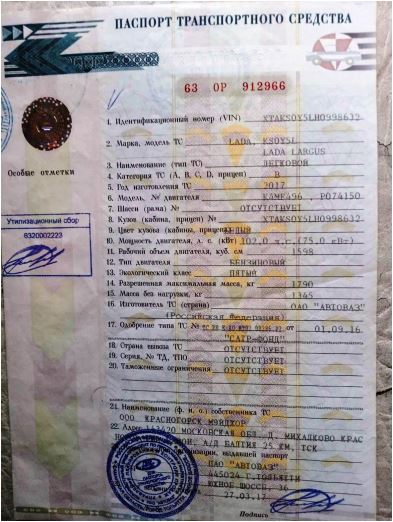 ПАСПОРТ ТРАНСПОРТНОГО СРЕДСТВА
63 ОР 912966
1. Идентификационный номер (VIN) XTAKS0Y5LH0998632
2. Марка, модель ТС LADA, KS0Y5L
LADA LARGUS
3. Наименование (тип ТС) ЛЕГКОВОЙ
Особые отметки
4. Категория ТС (А, В, С, D, прицеп) В
5. Год изготовления ТС 2017
6. Модель, № двигателя K4ME496, P074150
7. Шасси (рама) № ОТСУТСТВУЕТ
8. Кузов (кабина, прицеп) № XTAKS0Y5LH0998632
Утилизационный сбор
6320002223
9. Цвет кузова (кабины, прицепа) БЕЛЫЙ
10. Мощность двигателя, л. с. (кВт) 102.0 л.с.(75.0 кВт)
11. Рабочий объем двигателя, куб. см 1598
12. Тип двигателя БЕНЗИНОВЫЙ
13. Экологический класс ПЯТЫЙ
14. Разрешенная максимальная масса, кг 1790
15. Масса без нагрузки, кг 1345
16. Изготовитель ТС (страна) ОАО "АВТОВАЗ"
(Российская Федерация)
17. Одобрение типа ТС № от 01.09.16
"САТР-ФОНД"
18. Страна вывоза ТС ОТСУТСТВУЕТ
19. Серия, № ТД, ТПО ОТСУТСТВУЕТ
20. Таможенные ограничения ОТСУТСТВУЕТ
21. Наименование (ф. и. о.) собственника ТС
ООО КРАСНОГОРСК МЭЙДЖОР
22. Адрес 143420 МОСКОВСКАЯ ОБЛ. Д. МИХАЛКОВО КРАС
А/Д БАЛТИЯ 25 КМ, ТСК
выдавшей паспорт
ПАО "АВТОВАЗ"
445024 Г.ТОЛЬЯТТИ
ЮЖНОЕ ШОССЕ, 36
27.03.17
Подпись